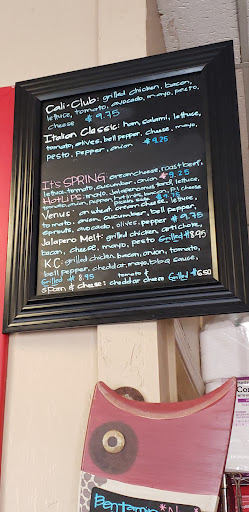 Cali-Club: grilled chicken, bacon,
lettuce, tomato, avocado, mayo, pesto,
cheese $9.75
Italian Classic: ham, salami, lettuce,
tomato, olives, bell pepper, cheese, mayo,
pesto, pepper, onion $9.25
It's SPRING: cream cheese, roast beef,
lettuce, tomato, cucumber, onion $9.25
HotLips: mayo, jalapeno mustard, lettuce,
tomato, onion, pepper, hot links, banana p., cheese
Venus: on wheat, cream cheese, lettuce,
tomato, onion, cucumber, bell pepper,
sprouts, avocado, olives, pepper $9.75
Jalapeno Melt: grilled chicken, artichoke,
bacon, cheese, mayo, pesto Grilled $8.95
K.C: grilled chicken, bacon, onion, tomato,
bell pepper, cheddar, mayo, bbq sauce,
Grilled $8.95 tomato &
Ham & cheese: cheddar cheese Grilled $6.50
Benjamin